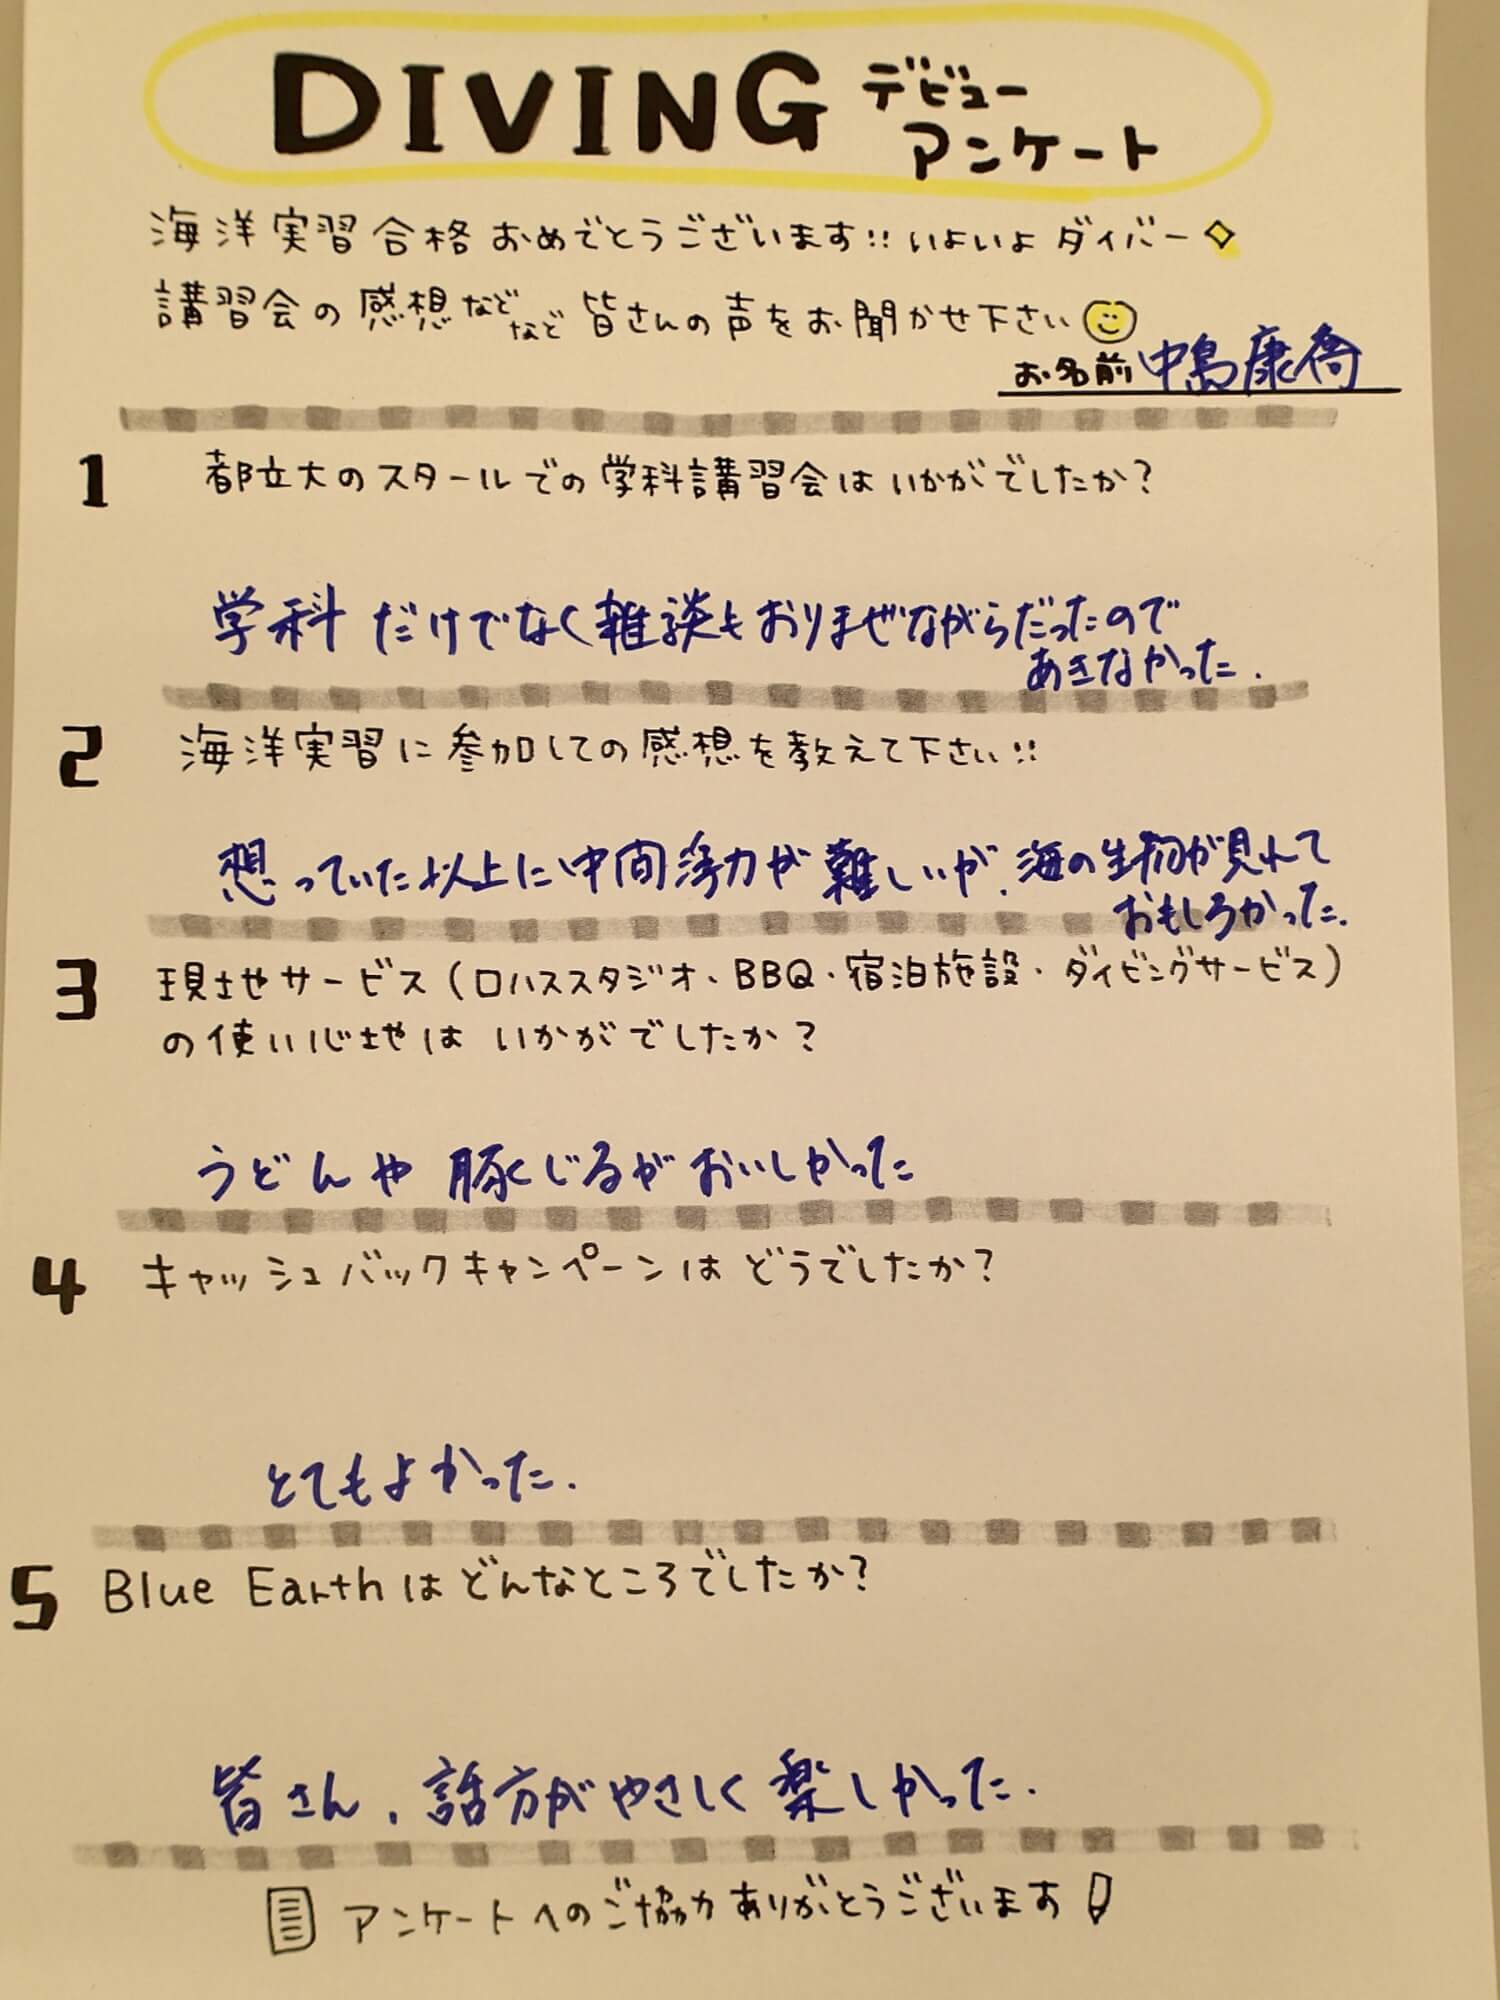 DIVING デビュー
アンケート
海洋実習合格おめでとうございます!! いよいよダイバー
講習会の感想などなど皆さんの声をお聞かせ下さい
お名前 中島康
1 都立大のスタールでの学科講習会はいかがでしたか?
学科だけでなく雑談もおりまぜながらだったので
あきなかった.
2 海洋実習に参加しての感想を教えて下さい!!
想っていた以上に中間浮力が難しいが、海の生物が見れて
おもしろかった.
3 現地サービス(ロハススタジオ、BBQ・宿泊施設・ダイビングサービス)
の使い心地は いかがでしたか?
うどんや 豚じるがおいしかった
4 キャッシュバックキャンペーンは どうでしたか?
とてもよかった.
5 Blue Earthはどんなところでしたか?
皆さん、話方がやさしく楽しかった.
アンケートへのご協力ありがとうございます